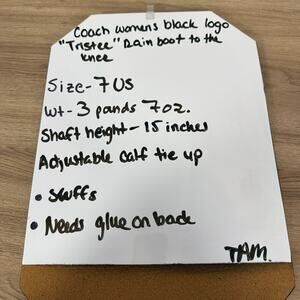 Coach womens black logo
"Tristee" Rain boot to the
knee
Size - 7 US
Wt - 3 pands 7 oz.
Shaft height - 15 inches
Adjustable calf tie up
• Scuffs
• Needs glue on back
TAM.